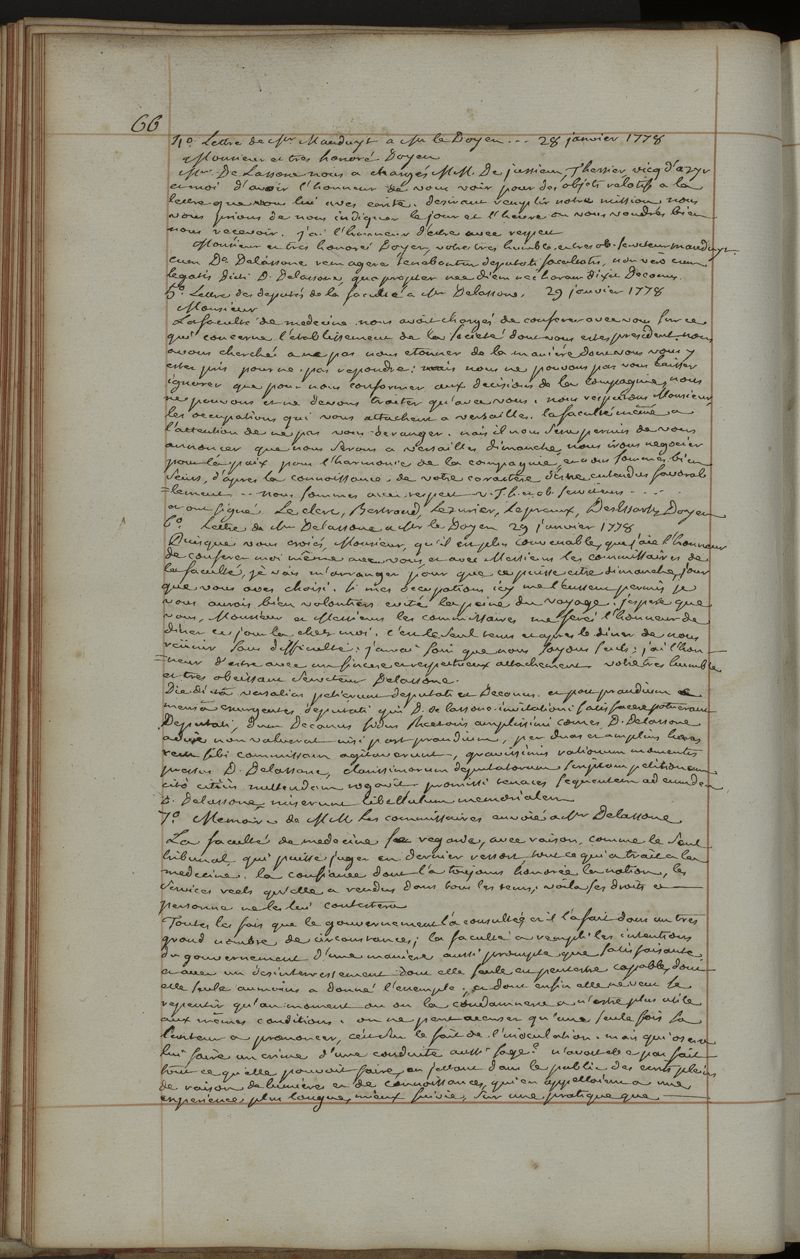 66
4º. Lettre de Mr Mauduyt a Mr le Doyen ... 28 janvier 1778
Monsieur et tres honoré Doyen
Mr. De Lassone nous a chargés MM. De jussieu, Thessier, vicq d'azyr
et moi d'avoir l'honneur de vous voir pour des objets relatifs a la
lettre que vous lui aves ecrite. desirant remplir notre mission nous
vous prions de nous indiquer le jour et l'heure ou vous voudrés bien
nous recevoir. j'ai l'honneur d'etre avec respect
Monsieur et tres honoré Doyen, votre tres humble et tres ob. serviteur mauduyt.
Cum Do. Delassone rem agere tenebantur deputati facultatis, non vero cum
legatis dicti D. Delassone, quapropter nec diem nec horam dixit Decanus.
5º. Lettre des deputés de la faculté a Mr Delassone. 29 janvier 1778
Monsieur
La faculté de medecine nous avoit chargés de conferer avec vous sur ce
qui concerne l'etablissement de la Societé dont vous estes president. nous
avons cherché a ne pas nous etonner de la maniére dont vous vous y
estes pris pour ne pas repondre: mais nous ne pouvons pas vous laisser
ignorer que pour nous conformer aux decisions de la compagnie, nous
ne pouvons et ne devons traiter qu'avec vous. nous respectons Monsieur,
les occupations qui vous attachent a versailles. la faculté même a
l'attention de ne pas vous deranger. mais il nous sera permis de vous
annoncer que nous serons a versailles dimanche, nous irons negocier
pour la paix, pour l'harmonie de la compagnie, et nous sommes bien
seurs, d'apres la connoissance de votre caractére d'estre entendus favorab
=lement ... nous sommes avec respect v. T. h. et ob. serviteurs ...
et ont signé Le clerc, Bertrand, Lezurier, Lepreux, DesEssartz Doyen
6º. Lettre de Mr Delassone a Mr le Doyen 29 janvier 1778
Puisque vous croiés, Monsieur, qu'il est plus convenable, que j'aie l'honneur
de conferer moi même avec vous, et avec Messieurs les commissaires de
la faculté, je vais m'arranger pour que ce puisse etre dimanche, jour
que vous aves choisi. si mes occupations icy me l'eussent permis je
vous aurois bien volontiers evité la peine du voyage. j'espere que
vous, Monsieur et Messieurs les commissaires me feré l'honneur de
diner ce jour la chez moi. c'est le seul tems et apres le diner de nous
reünir sans difficulté: j'aurai soin que nous soyons seuls; j'ai l'hon-
=neur d'estre avec un sincere et respectueux attachement votre tres humble
et tres obeissant serviteur Delassone.
Die dictâ versalias petierunt deputati et Decanus. et post prandium e
mensâ surgentes, deputati qui D. de lassone invitationi satisfacere potuerant
Deputati, dum Decanus amplissimi comes D. Delassone
non valuerat nisi post prandium, per duas et amplius horas
rem sibi commissam agitaverunt, gravissimis rationum momentis
pressus D. Delassone, clarissimorum deputatorum scriptam petitionem
citò citiùs mittendam rogavit. promissi tenaces sequentem ad eumdem
D. Delassone, miserunt libellulum memorialem
7º. Memoire de MM les commissaires envoié a Mr Delassone
La faculté de medecine se regarde, avec raison, comme le seul
tribunal, qui puisse juger en dernier ressort, tout ce qui a trait a la
medecine. la confiance dont l'a toujours honorée la nation, les
services reels qu'elle a rendus dans tous les tems, voila ses droits et
personne ne les lui contestera
Toutes les fois que le gouvernement l'a consultée, et il l'a fait dans un tres
grand nombre de circonstances; la faculté a rempli les intentions
du gouvernement d'une maniére aussi prompte que satisfaisante,
et avec un desinterressement dont elle seule est peutestre capable, dont
elle seule au moins a donné l'exemple, et dont enfin elle ne veut se
repentir qu'au moment ou on la condamnera a n'estre plus utile
aux mêmes conditions. on ne peut accuser qu'une seule fois sa
lenteur a prononcer, c'est sur le fait de l'inoculation. mais qui osera
lui faire un crime d'une conduite aussi sage? n'avoit elle pas fait
tout ce qu'elle pouvoit faire, en jettant dans le public des ecrits pleins
de raison de lumiére et de connoissances, qu'en appellant a une
experience plus longue, mieux suivie, sur une pratique que